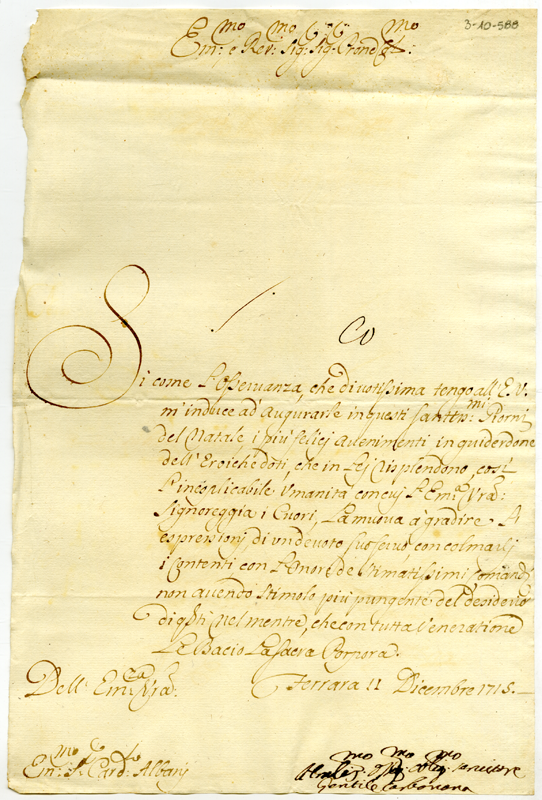 3-10-588
Em:mo e Rev:mo Sig:r Sig:r Prone
Co
Si come l'Osseruanza, che diuotissima tengo all'E.V.
m'induce ad'Augurarle in questi Santiss:mi Giorni
del Natale i più felicj auenimenti in guiderdone
dell'Eroiche doti, che in Lej risplendono, così
l'inesplicabile Vmanità concuj l'Em:za Vra:
Signoreggia i Cuori, La muoua à gradire l'
espressioni di un deuoto suo seruo con colmarlj
i Contenti con l'Onore de stimatissimi Comandi
non auendo stimolo più pungente del desiderio
di q:sti Nel mentre, che con tutta Veneratione
Le Bacio La Sacra Porpora.
Dell'Em:za Vra: Ferrara 11 Dicembre 1715.
Em:mo S:r Card: Albanj
Vmiliss:mo Oss:mo Obl:mo seruitore
Gentile